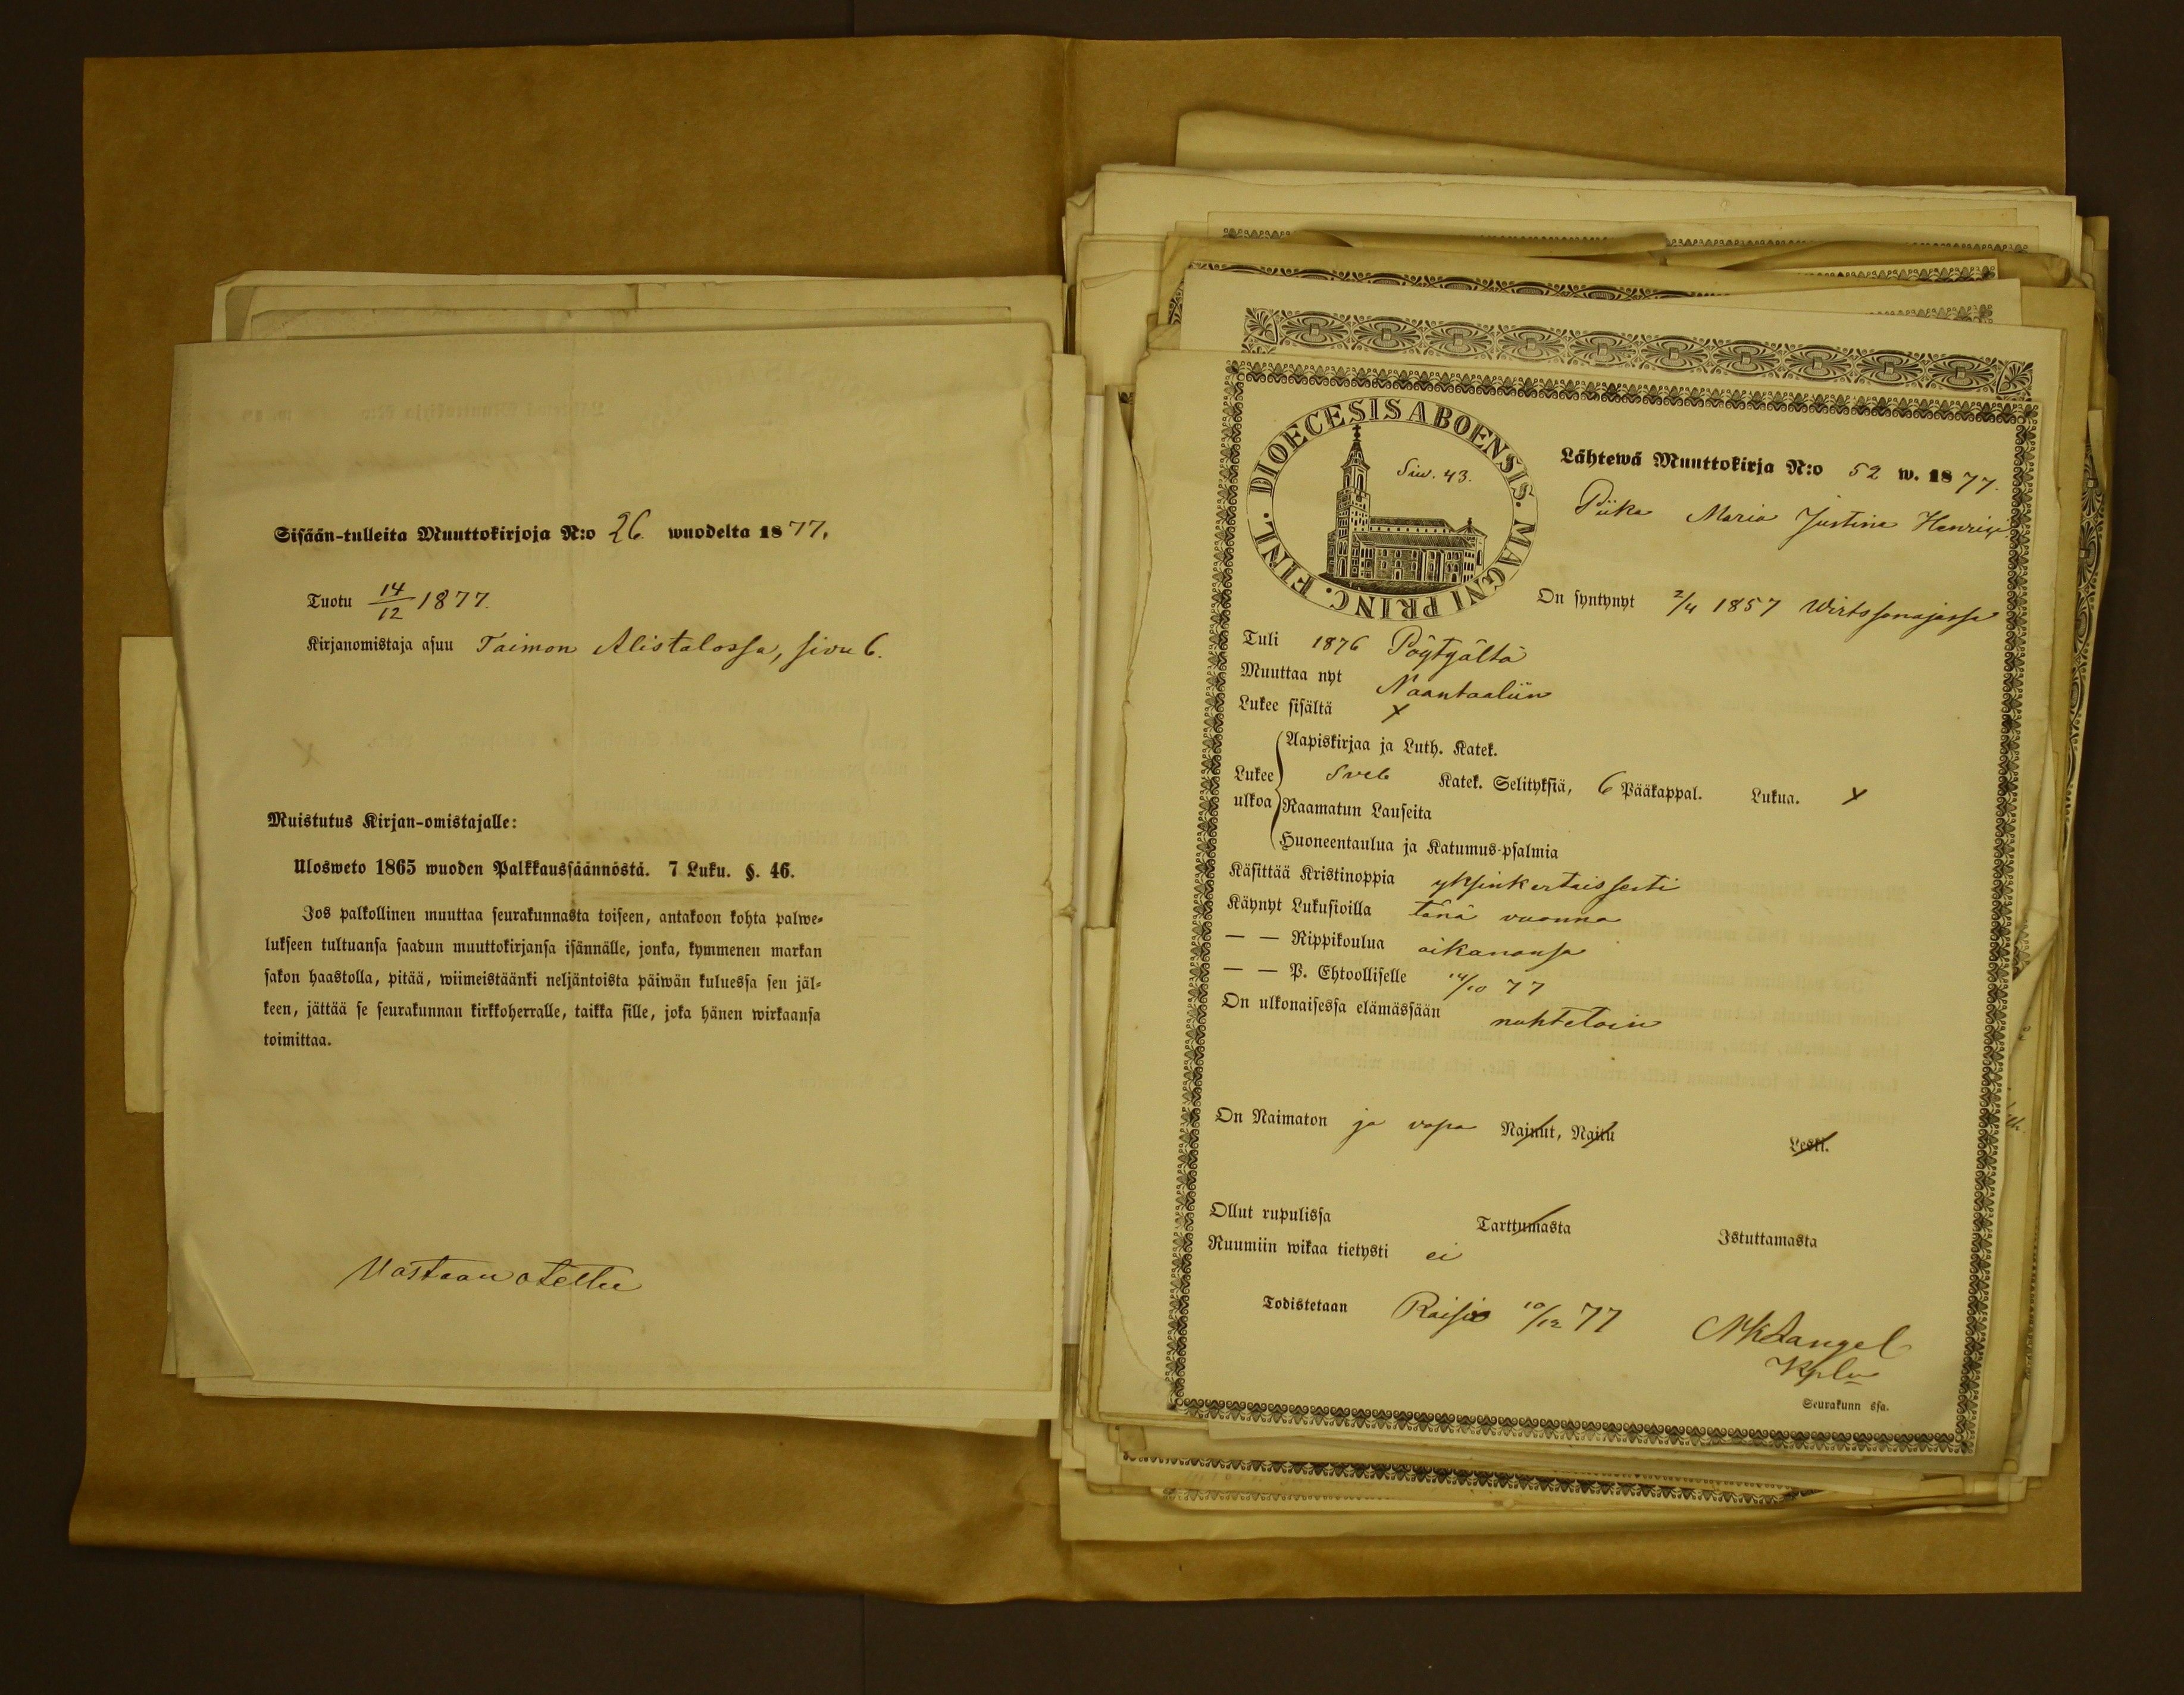 Sisään-tulleita Muuttokirjoja N:o 26. wuodelta 1877.
Tuotu 14/12 1877.
Kirjanomistaja asuu Taimon Alistalossa, sivu 6.
Muistutus Kirjan-omistajalle:
Ulosweto 1865 wuoden Palkkaussäännöstä. 7 Luku. §. 46.
Jos palkollinen muuttaa seurakunnasta toiseen, antakoon kohta palwe-
lukseen tultuansa saadun muuttokirjansa isännälle, jonka, kymmenen markan
sakon haastolla, pitää, wiimeistäänki neljäntoista päiwän kuluessa sen jäl-
keen, jättää se seurakunnan kirkkoherralle, taikka sille, joka hänen wirkaansa
toimittaa.
Vastaan otettu
DIOECESIS ABOENSIS. MAGNI PRINC. FINL.
Siw. 43.
Lähtewä Muuttokirja N:o 52 w. 1877.
Piika Maria Justina Henrici
On syntynyt 2/4 1857 Wirtssanojassa
Tuli 1876 Pöytyältä
Muuttaa nyt Naantaaliin
Lukee sisältä x
Lukee ulkoa
Aapiskirjaa ja Luth. Katek.
Sveb Katek. Selityksiä, 6 Pääkappal. Lukua. x
Raamatun Lauseita
Huoneentaulua ja Katumus-psalmia
Käsittää Kristinoppia yksinkertaissesti
Käynyt Lukusioilla tänä vuonna
— — Rippikoulua aikanansa
— — P. Ehtoolliselle 14/10 77
On ulkonaisessa elämässään nuhtetoin
On Naimaton ja vapa Nainut, Naitu Leski.
Ollut rupulissa Tarttumasta Istuttamasta
Ruumiin wikaa tietysti ei
Todistetaan Raisio 10/12 77
Langel
Kpln
Seurakunn ssa.